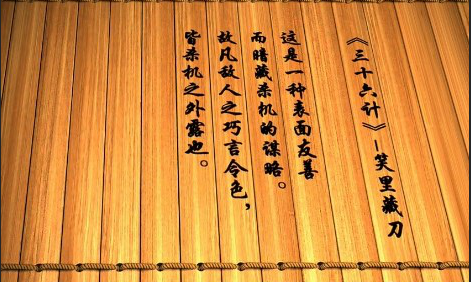 《三十六计》—笑里藏刀
这是一种表面友善
而暗藏杀机的谋略。
故凡敌人之巧言令色，
皆杀机之外露也。